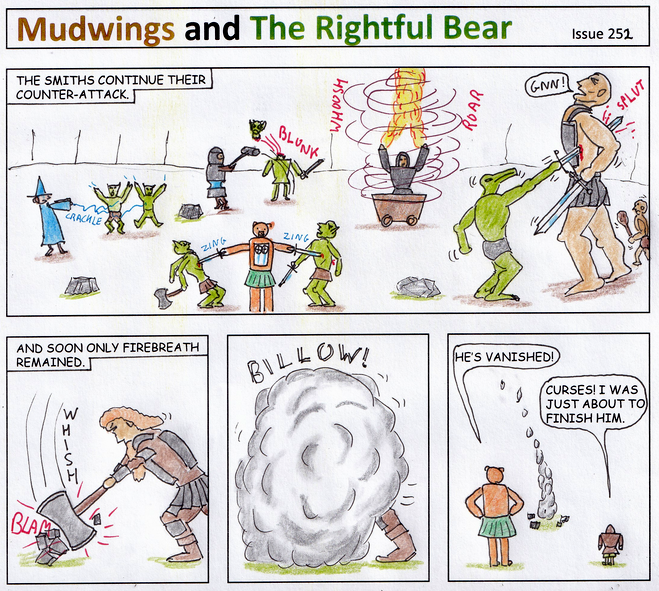 Mudwings and The Rightful Bear
Issue 251
THE SMITHS CONTINUE THEIR
COUNTER-ATTACK.
CRACKLE
BLUNK
ZING
ZING
WHOOSH
ROAR
GNN!
SPLUT
AND SOON ONLY FIREBREATH
REMAINED.
WHISH
BLAM
BILLOW!
HE'S VANISHED!
CURSES! I WAS
JUST ABOUT TO
FINISH HIM.